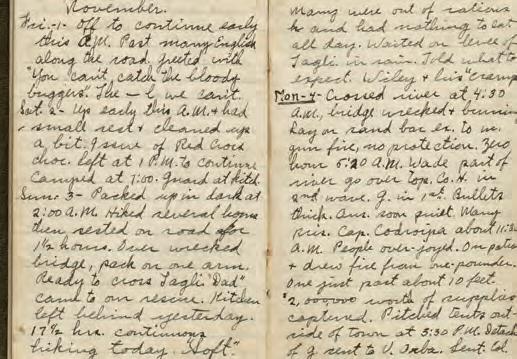 November.
Fri.-1- Off to continue early
this A.M. Past many English
along the road greeted with
"You can't catch the bloody
buggers". The — l we can't.
Sat. 2- Up early this A.M. & had
small rest & cleaned up
a bit. Issue of Red Cross
choc. left at 1 P.M. to continue
Camped at 7:00. Guard at Kitch.
Sun. 3- Packed up in dark at
2:00 A.M. Hiked several hours
then rested on road for
1½ hours. Over wrecked
bridge, pack on one arm.
Ready to cross Tagli. "Dad"
came to our rescue. Kitchen
left behind yesterday.
17½ hrs. continuous
hiking today. "Soft."
Many were out of rations
& and had nothing to eat
all day. Waited on levee of
Tagli. in rain. Told what to
expect. Wiley & his cramp
Mon-4- Crossed river at 4:30
A.M., bridge wrecked & burning
Lay on sand bar ex. to m.
gun fire, no protection. Zero
hour 5:20 A.M. Wade part of
river go over top. Co. H. in
2nd wave. G. in 1st. Bullets
thick. Aus. soon quiet. Many
pris. Cap. Codroipa about 11:30
A.M. People over-joyed. On patrol
& drew fire from one-pounder.
One just past about 10 feet.
$2,000,000 worth of supplies
captured. Pitched tents out-
side of town at 3:30 P.M. Detach
of G. sent to V. Sent. Col.